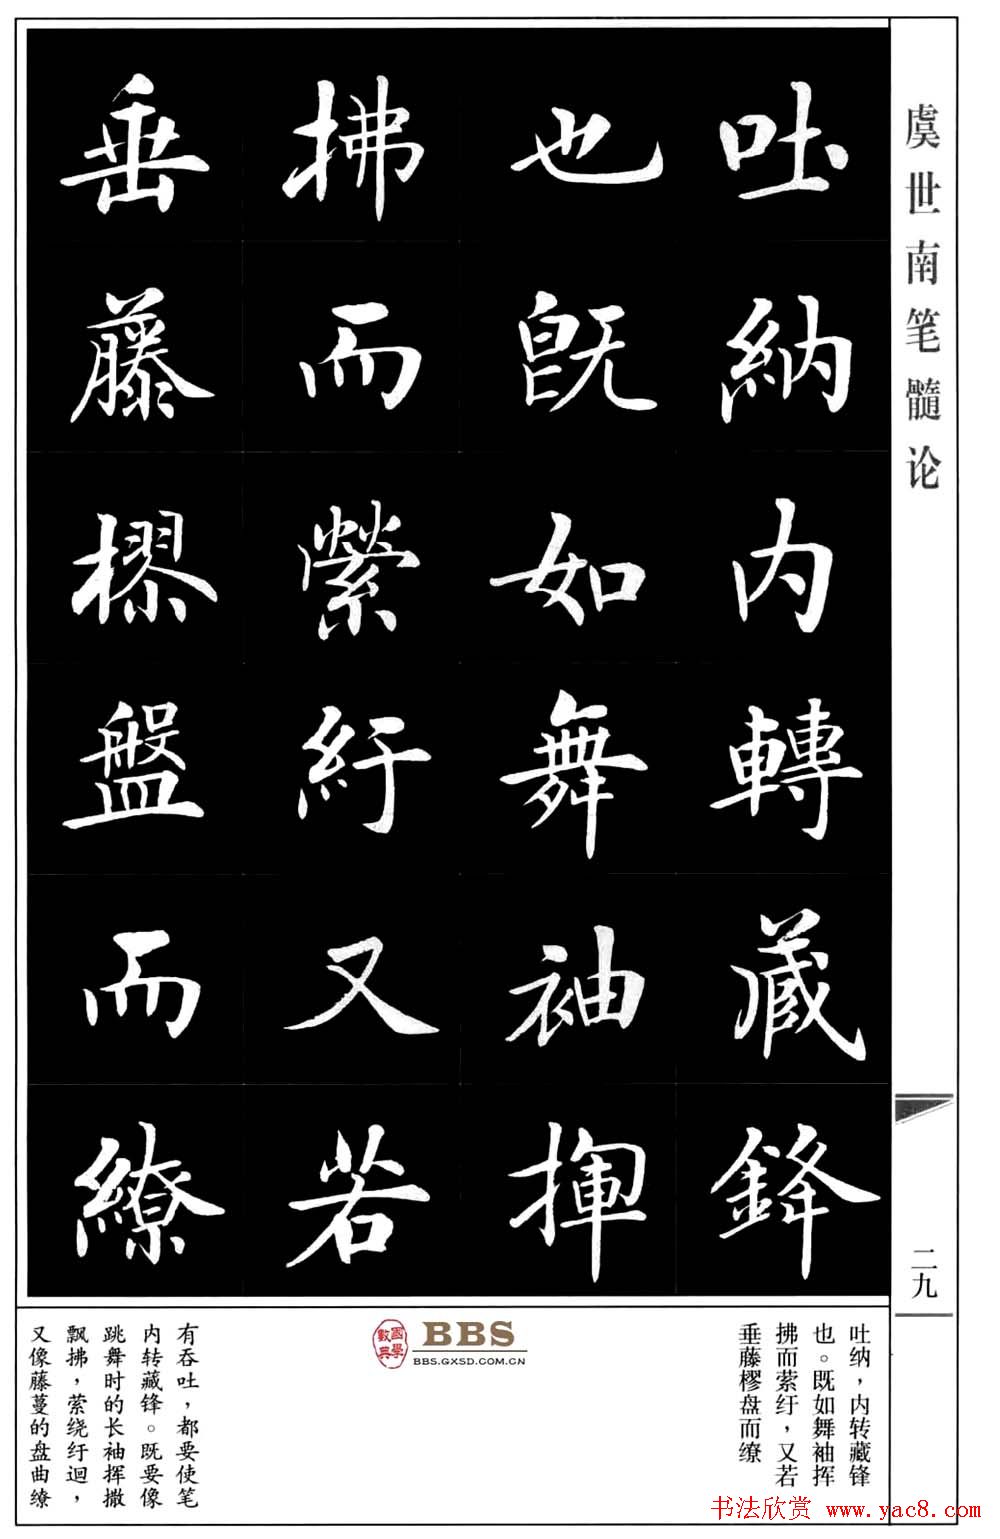 虞世南笔髓论
二九
吐納内轉藏鋒
也既如舞袖揮
拂而縈紆又若
垂藤樛盤而繚
吐纳，内转藏锋
也。既如舞袖挥
拂而萦纡，又若
垂藤樛盘而缭
國學數典
BBS
BBS.GXSD.COM.CN
有吞吐，都要使笔
内转藏锋。既要像
跳舞时的长袖挥撒
飘拂，萦绕纡迴，
又像藤蔓的盘曲缭
书法欣赏 www.yac8.com